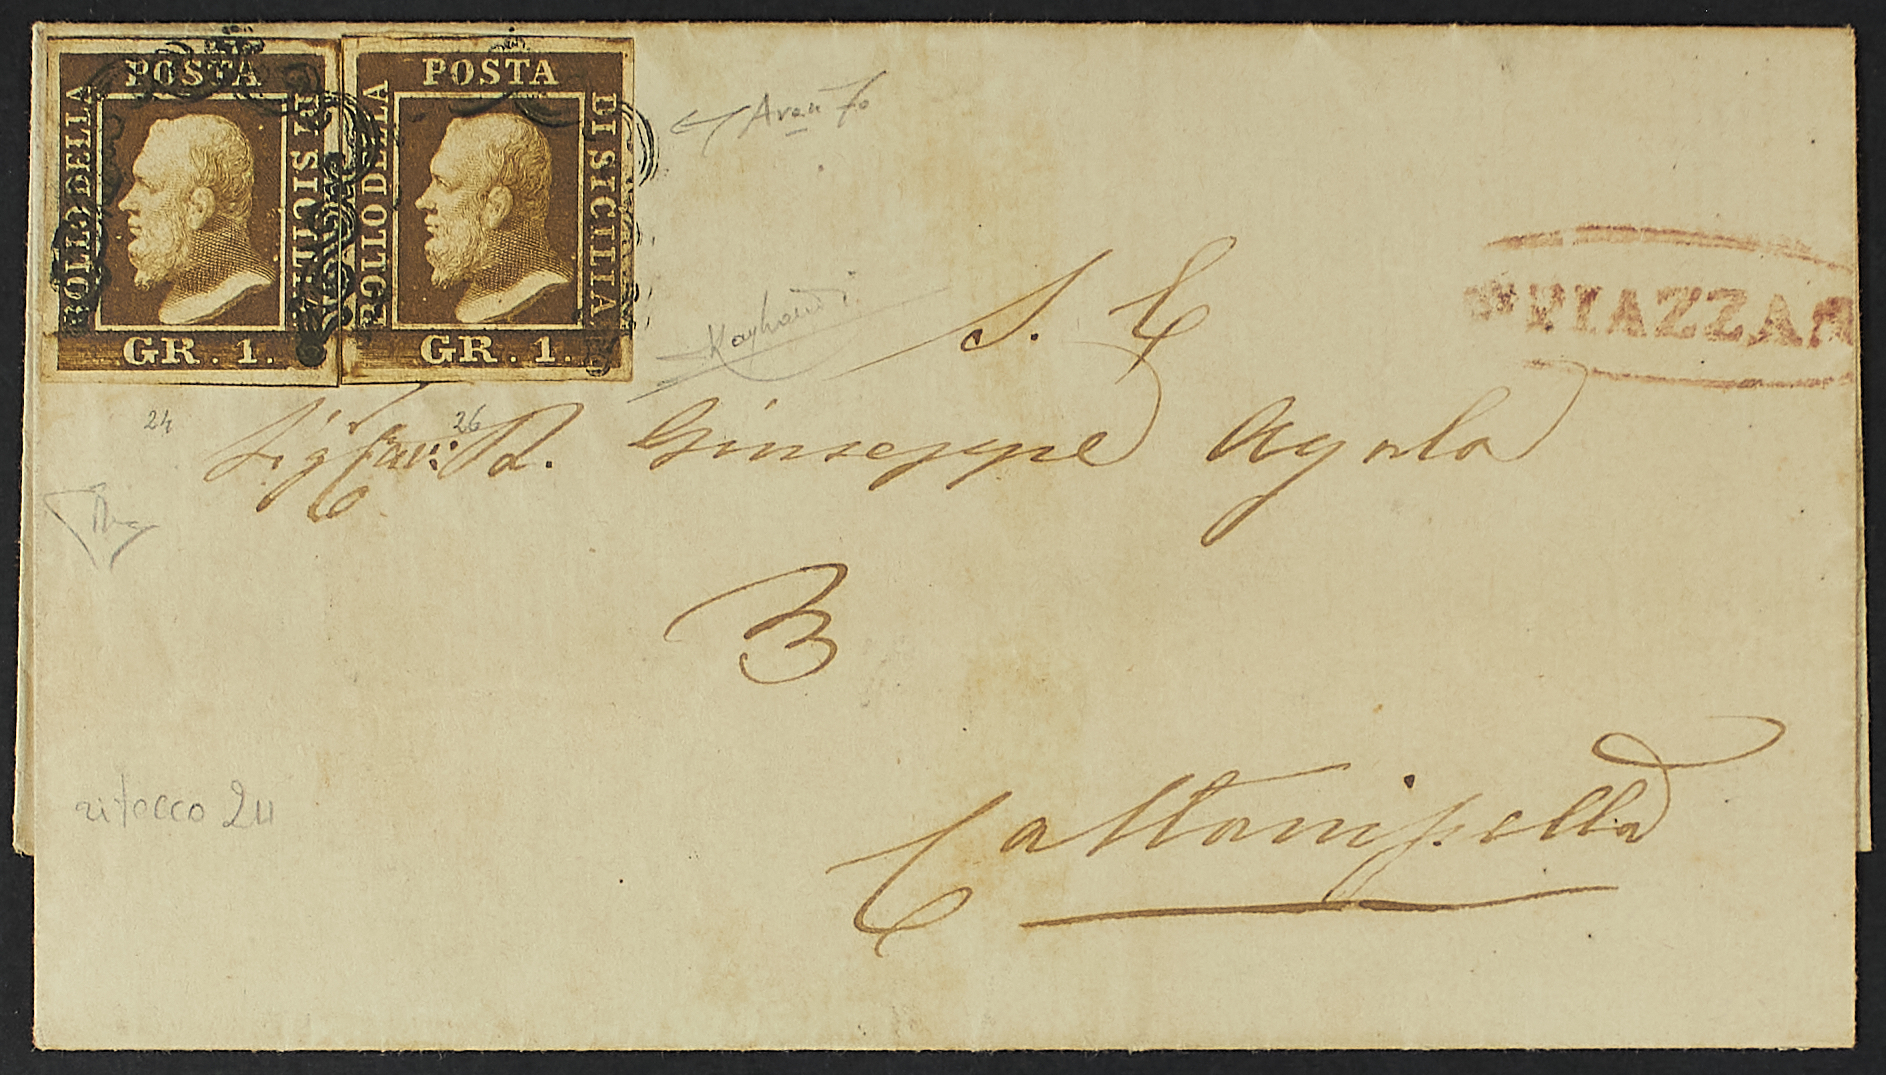 POSTA
BOLLO DELLA
DI SICILIA
GR. 1.
POSTA
BOLLO DELLA
DI SICILIA
GR. 1.
PIAZZA
S. E.
24
26
Sig. Cav: D. Giuseppe Ayala
Cattanissetta
ritocco 24